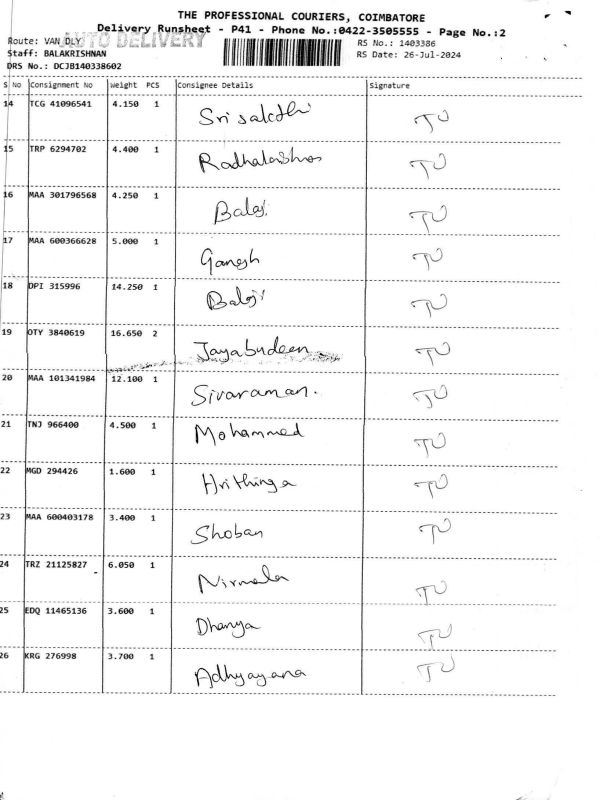 THE PROFESSIONAL COURIERS, COIMBATORE
Delivery Runsheet - P41 - Phone No.:0422-3505555 - Page No.:2
AUTO DELIVERY
Route: VAN DLY
RS No.: 1403386
Staff: BALAKRISHNAN
RS Date: 26-Jul-2024
DRS No.: DCJB140338602
S No Consignment No Weight PCS Consignee Details Signature
14 TCG 41096541 4.150 1 Srisakthi TU
15 TRP 6294702 4.400 1 Radhakrishnan TU
16 MAA 301796568 4.250 1 Balaji TU
17 MAA 600366628 5.000 1 Ganesh TU
18 DPI 315996 14.250 1 Balaji TU
19 OTY 3840619 16.650 2 Jayabudeen TU
20 MAA 101341984 12.100 1 Sivaraman. TU
21 TNJ 966400 4.500 1 Mohammed TU
22 MGD 294426 1.600 1 Hrithinga TU
23 MAA 600403178 3.400 1 Shoban TU
24 TRZ 21125827 6.050 1 Nirmala TU
25 EDQ 11465136 3.600 1 Dhanya TU
26 KRG 276998 3.700 1 Adhyayana TU